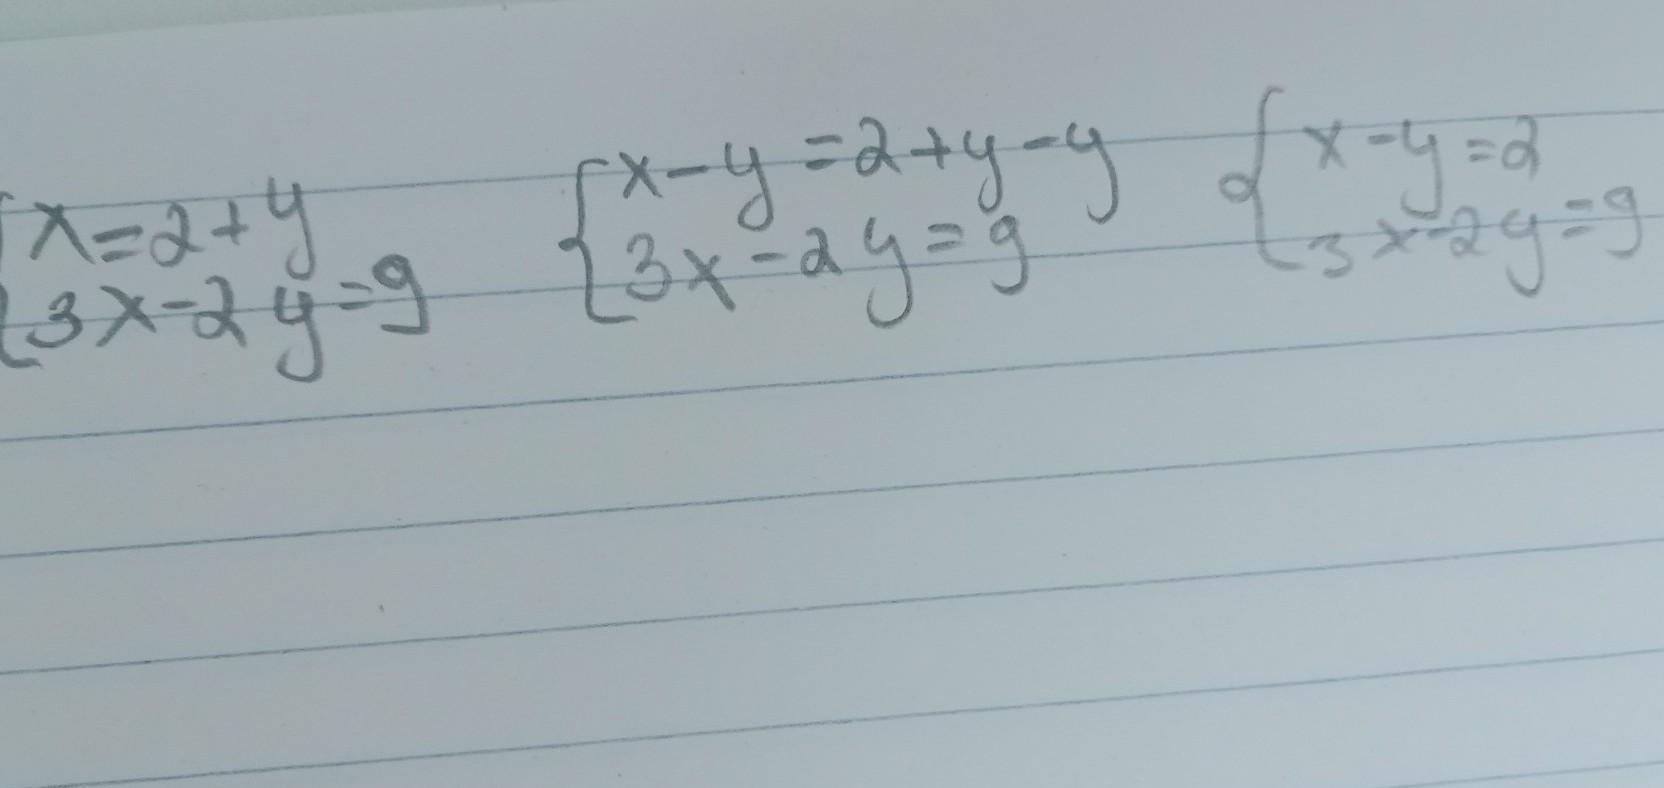 x=2+y
3x-2y=9
x-y=2+y-y
3x-2y=9
x-y=2
3x-2y=9